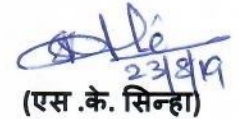 23/8/19
(एस .के. सिन्हा)